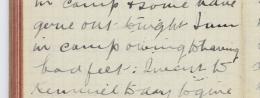 in camp & some have
gone out tonight I am
in camp owing to having
bad feet: I went to
today to give